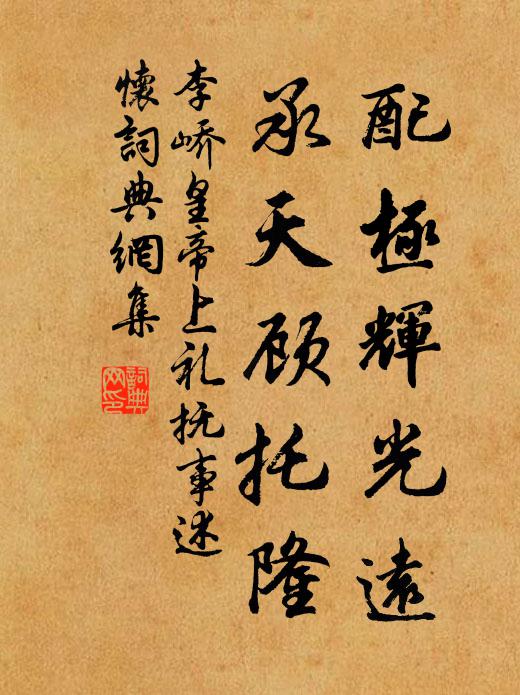 配極輝光遠
承天顾托隆
李嶠皇帝上礼抚事述
懷詞典網集
詞典
网印